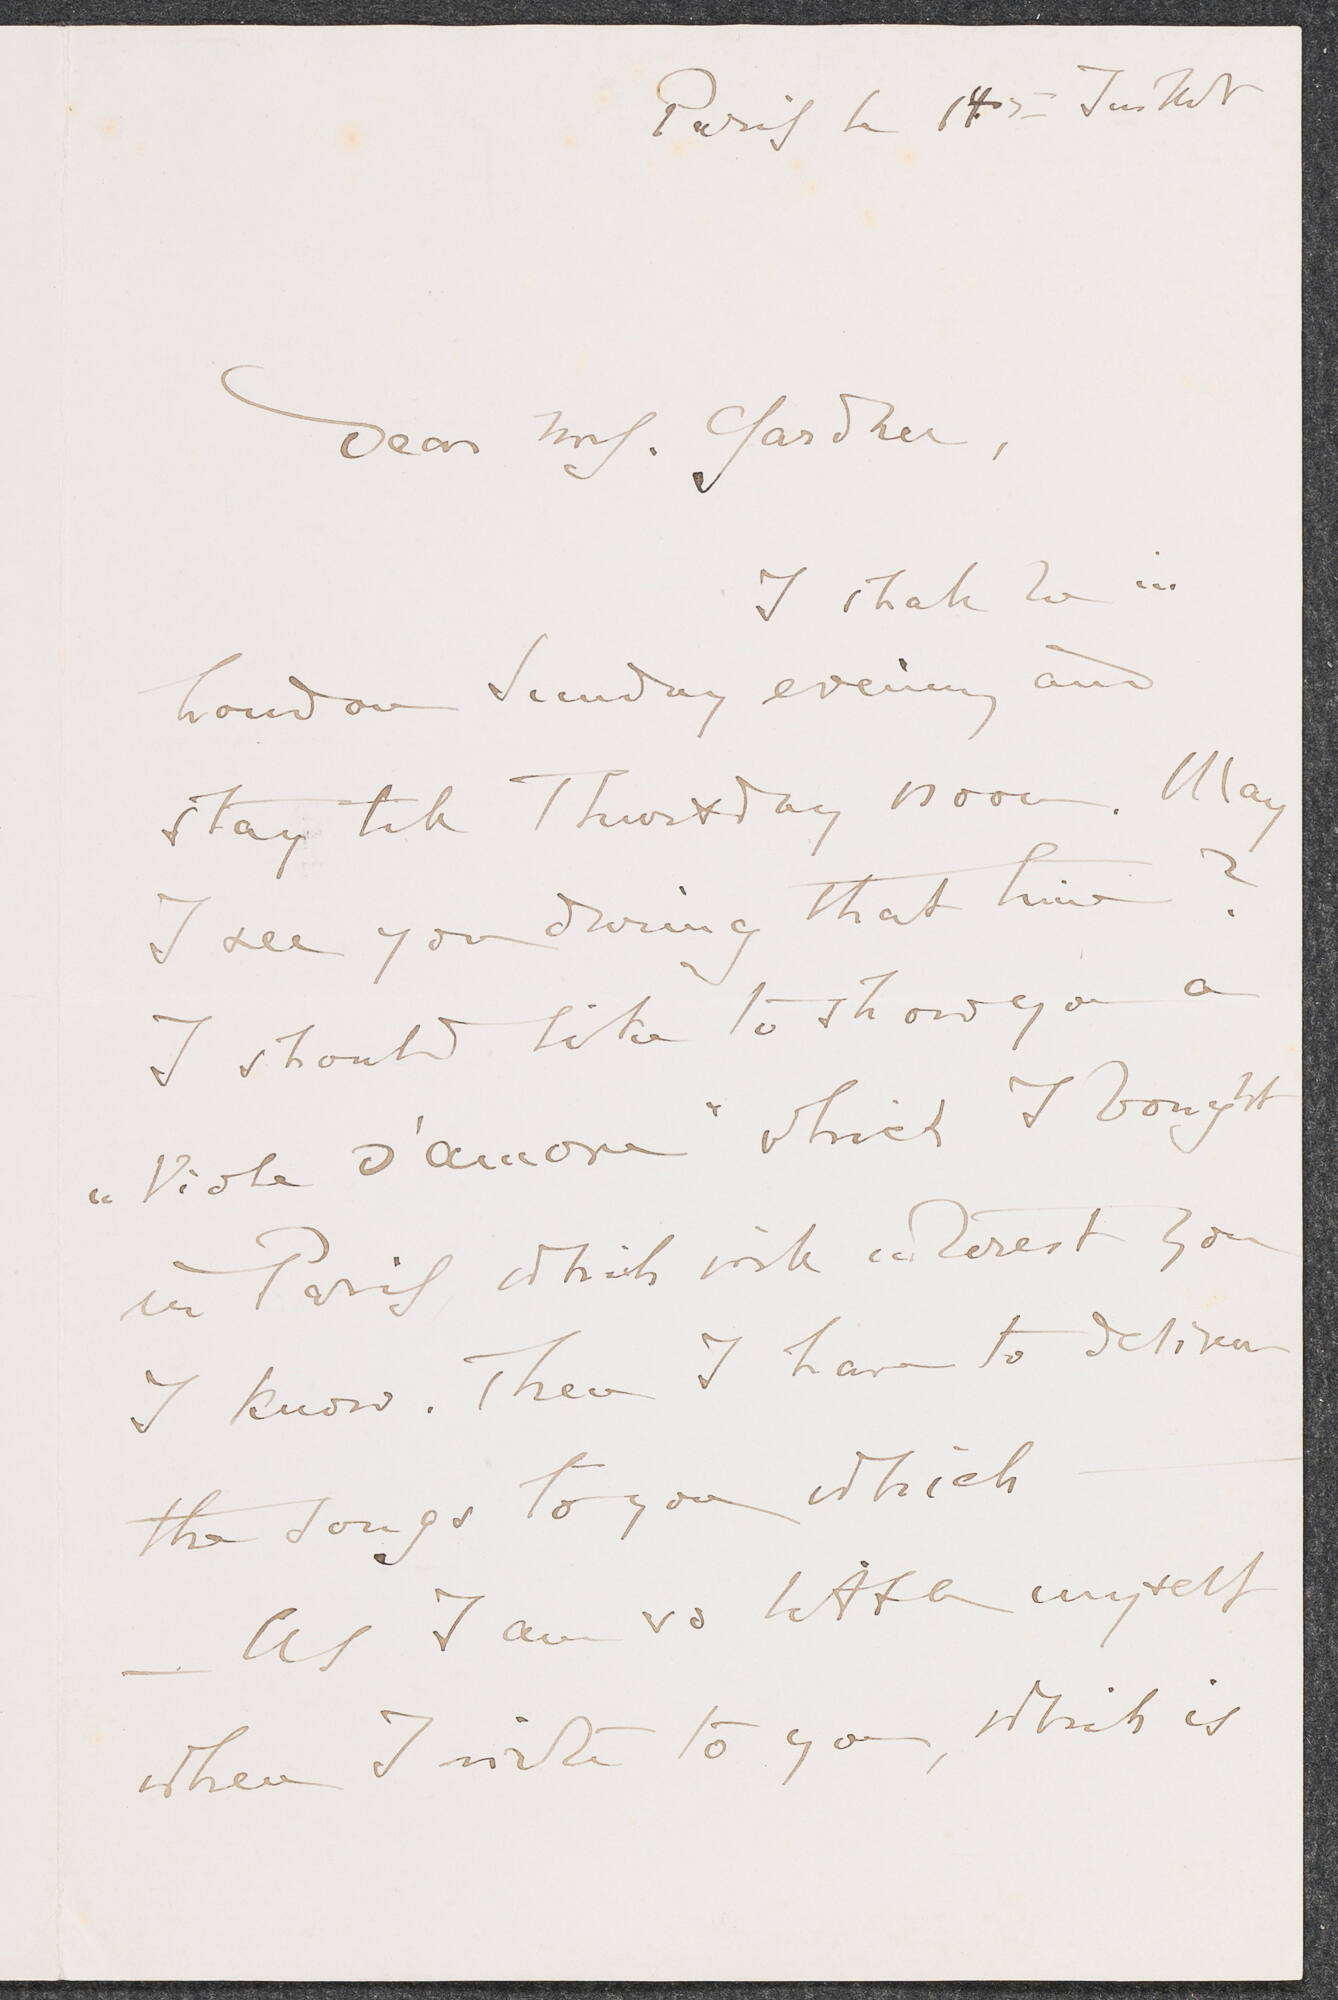 Paris le 14 Juillet
Dear Mrs. Gardner,
I shall be in
London Sunday evening and
stay till Thursday noon. May
I see you during that time?
I should like to show you a
„Viole d'amore" which I bought
in Paris which will interest you
I know. Then I have to deliver
the songs to you which —
— As I am so little myself
when I write to you, which is